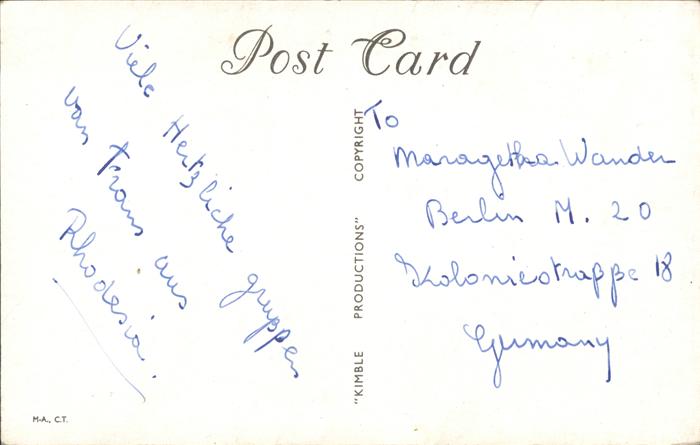 Post Card
Viele Hertzliche gruppen
van Frans aus
Rhodesia.
"KIMBLE PRODUCTIONS" COPYRIGHT
To
Maragetha Wander
Berlin M. 20
Koloniestraßße 18
Germany
M-A., C.T.